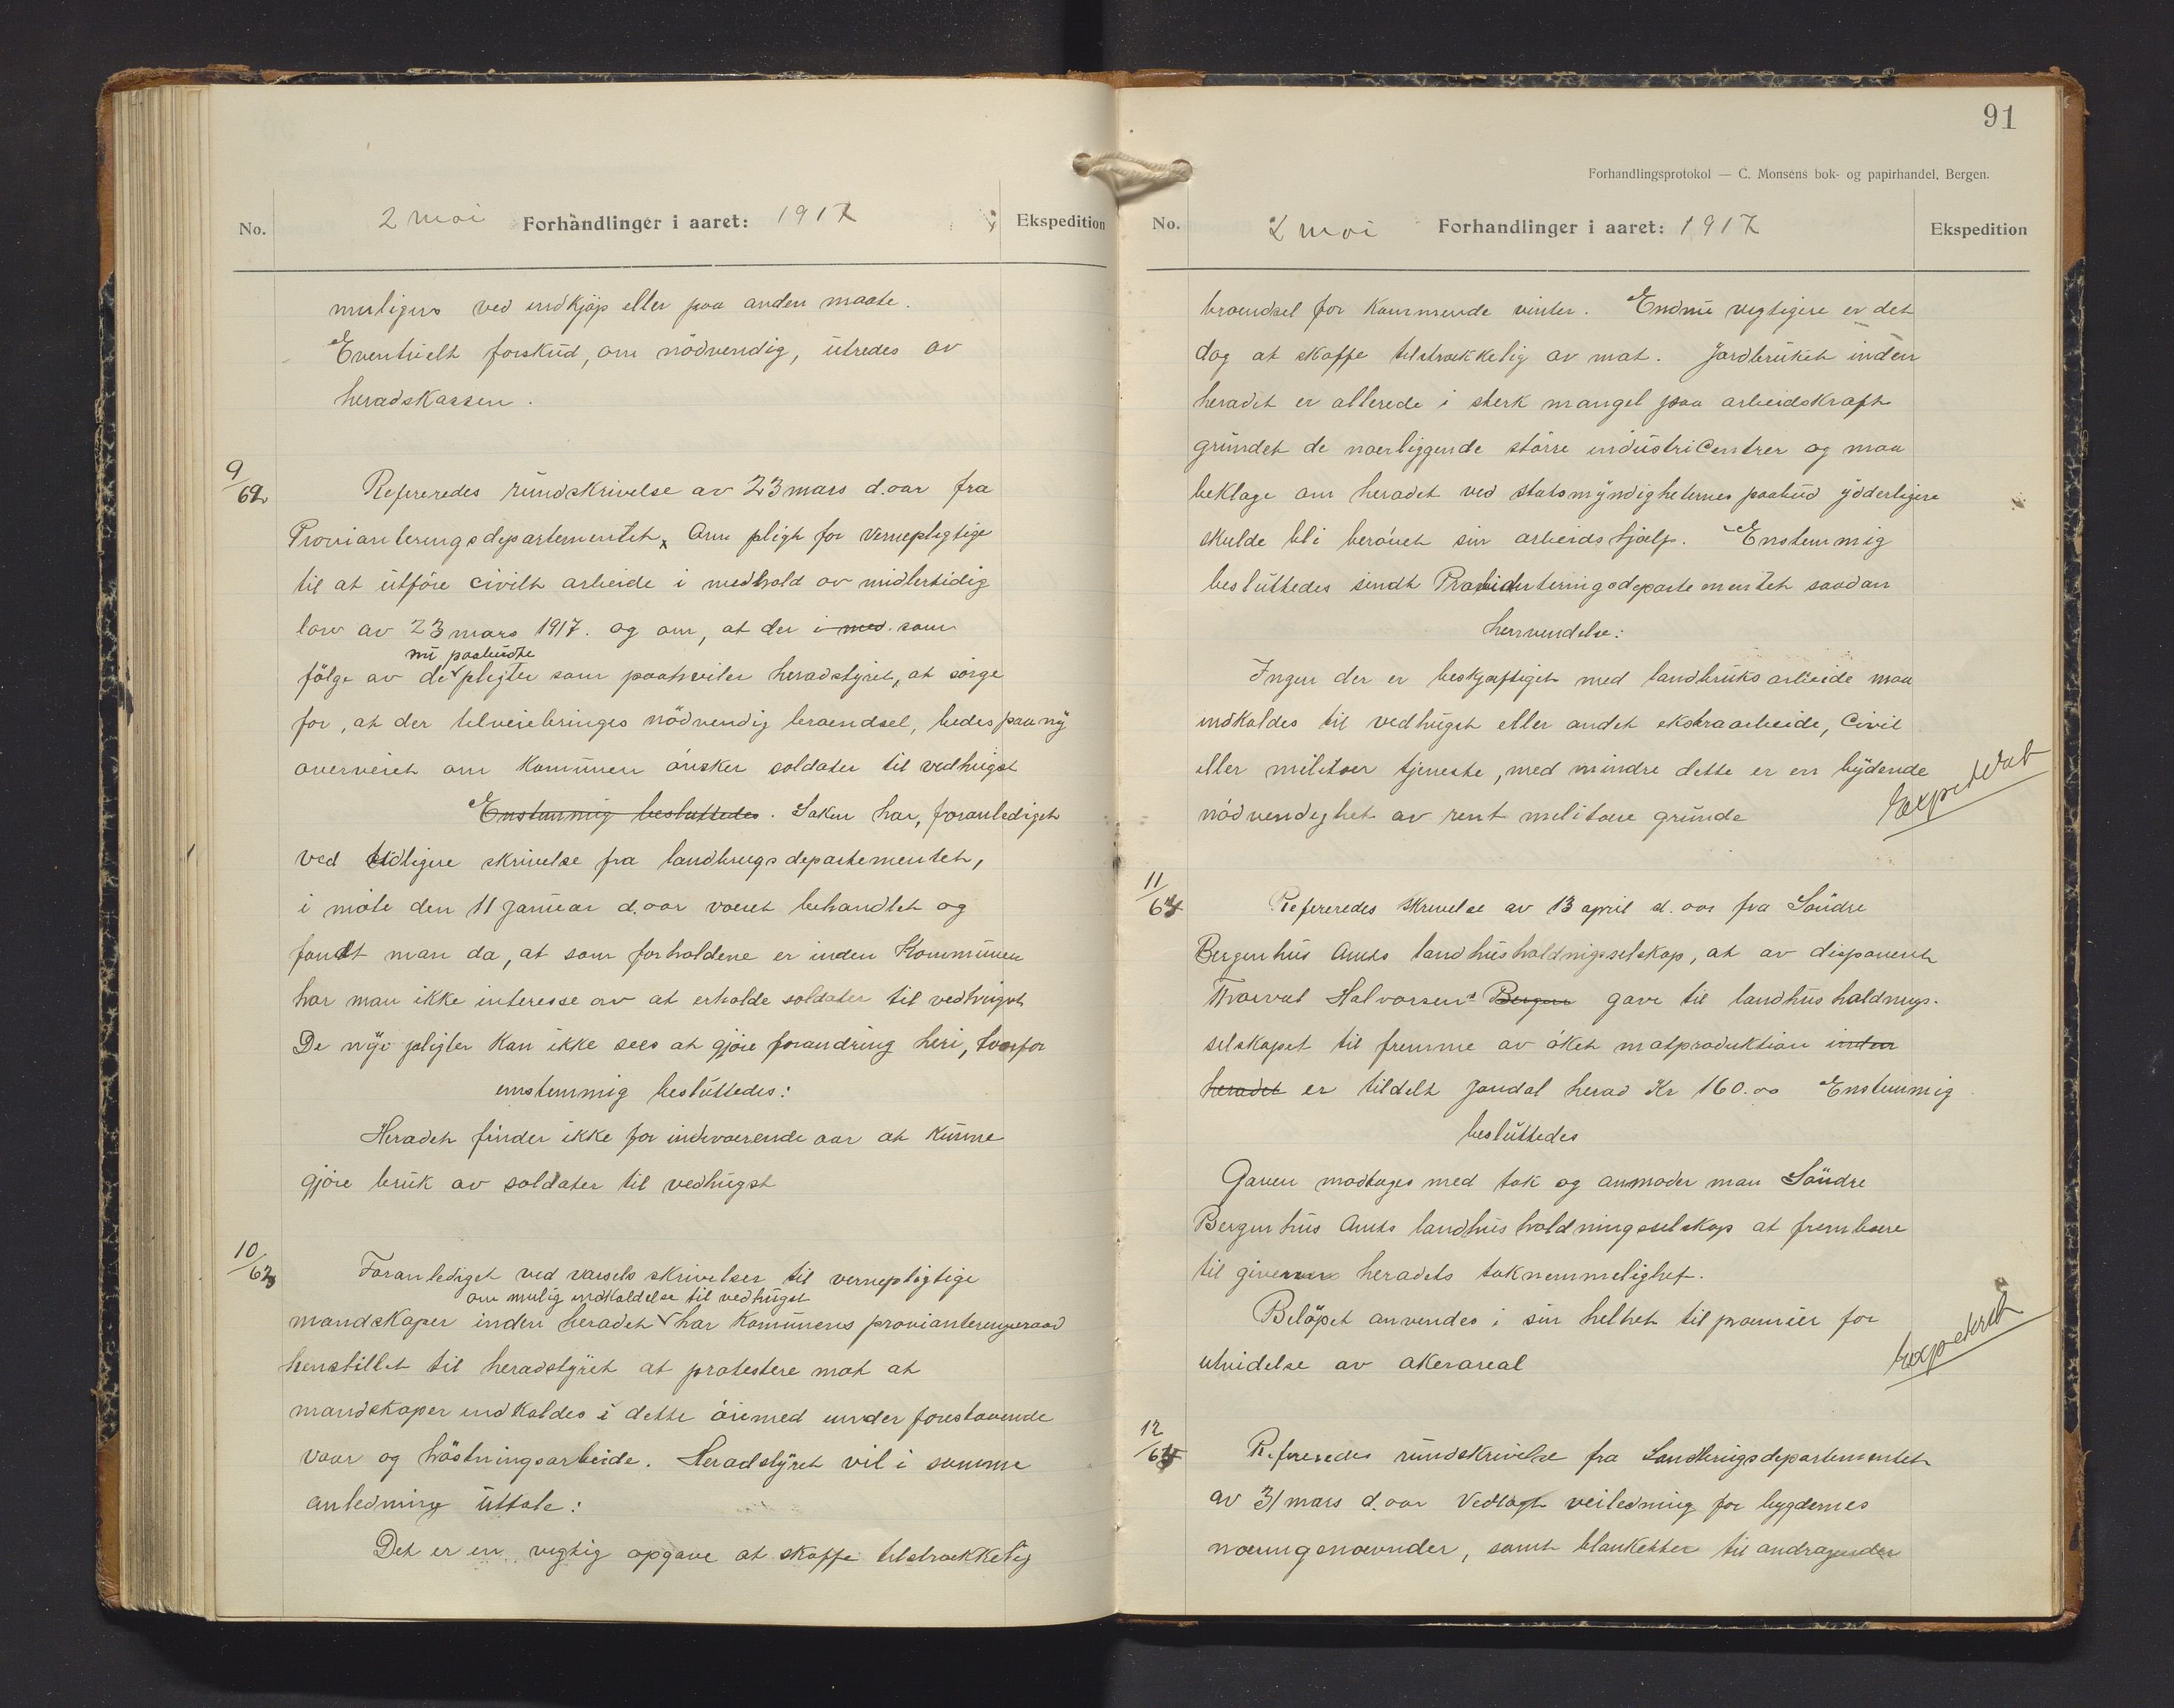 No.
2 mai Forhandlinger i aaret: 1917
Ekspedition
muligens ved indkjöp eller paa anden maate.
Eventuelt forskud, om nödvendig, utredes av
heradskassen.
9/62
Refereredes rundskrivelse av 23 mars d.aar fra
Provianteringsdepartementet, Om pligt for vernepligtige
til at utföre civilt arbeide i medhold av midlertidig
lov av 23 mars 1917. og om, at der i med. som
nu paabudte
fölge av de pligter som paahviler heradstyret, at sörge
for, at der tilveiebringes nödvendig brændsel, bedes paa ny
overveiet om kommunen önsker soldater til vedhugst
Enstemmig besluttedes. Saken har, foranlediget
ved tidligere skrivelse fra landbrugsdepartementet,
i möte den 11 januar d.aar været behandlet og
fandt man da, at som forholdene er inden Kommunen
har man ikke interesse av at erholde soldater til vedhugst
De nye pligter kan ikke sees at gjöre forandring heri, hvorfor
enstemmig besluttedes:
Heradet finder ikke for indeværende aar at kunne
gjöre bruk av soldater til vedhugst
10/63
Foranlediget ved varsels skrivelser til vernepligtige
om mulig indkaldelse til vedhugst
mandskaper inden heradet har kommunens provianteringsraad
henstillet til heradstyret at protestere mot at
mandskaper indkaldes i dette öiemed under forestaaende
vaar og höstningsarbeide. Heradstyret vil i samme
anledning uttale:
Det er en vigtig opgave at skaffe tilstrækkelig
91
Forhandlingsprotokol — C. Monsens bok- og papirhandel, Bergen.
No.
2 mai Forhandlinger i aaret: 1917
Ekspedition
brændsel for kommende vinter. Endnu vigtigere er det
dog at skaffe tilstrækkelig av mat. Jordbruket inden
heradet er allerede i sterk mangel paa arbeidskraft
grundet de nærliggende större industricentrer og maa
beklage om heradet ved statsmyndigheternes paabud ydderligere
skulde bli berövet sin arbeidshjælp. Enstemmig
besluttedes sendt Provianteringsdepartementet saadan
henvendelse:
Ingen der er beskjæftiget med landbruks arbeide maa
indkaldes til vedhugst eller andet ekstraarbeide, civil
eller militær tjeneste, med mindre dette er en bydende
nödvendighet av rent militære grunde
Expedert
11/64
Refereredes skrivelse av 13 april d.aar fra Söndre
Bergenhus Amts landhusholdningsselskap, at av disponent
Thorval Halvorsens Bergen gave til landhusholdnings-
selskapet til fremme av öket matproduktion inden
heradet er tildelt Jondal herad Kr 160.00 Enstemmig
besluttedes
Gaven modtages med tak og anmoder man Söndre
Bergenhus Amts landhusholdningsselskap at frembære
til giveren heradets taknemmelighet.
Belöpet anvendes i sin helhet til præmier for
utvidelse av akerareal
Expedert
12/65
Refereredes rundskrivelse fra Landbrugsdepartementet
av 31 mars d.aar Vedlagt veiledning for bygdernes
næringsnævnder, samt blanketter til andragender